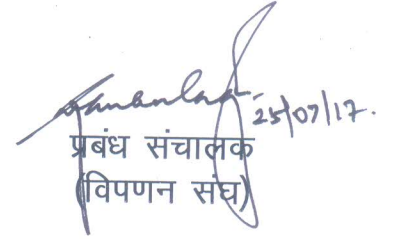 25/07/17.
प्रबंध संचालक
(विपणन संघ)